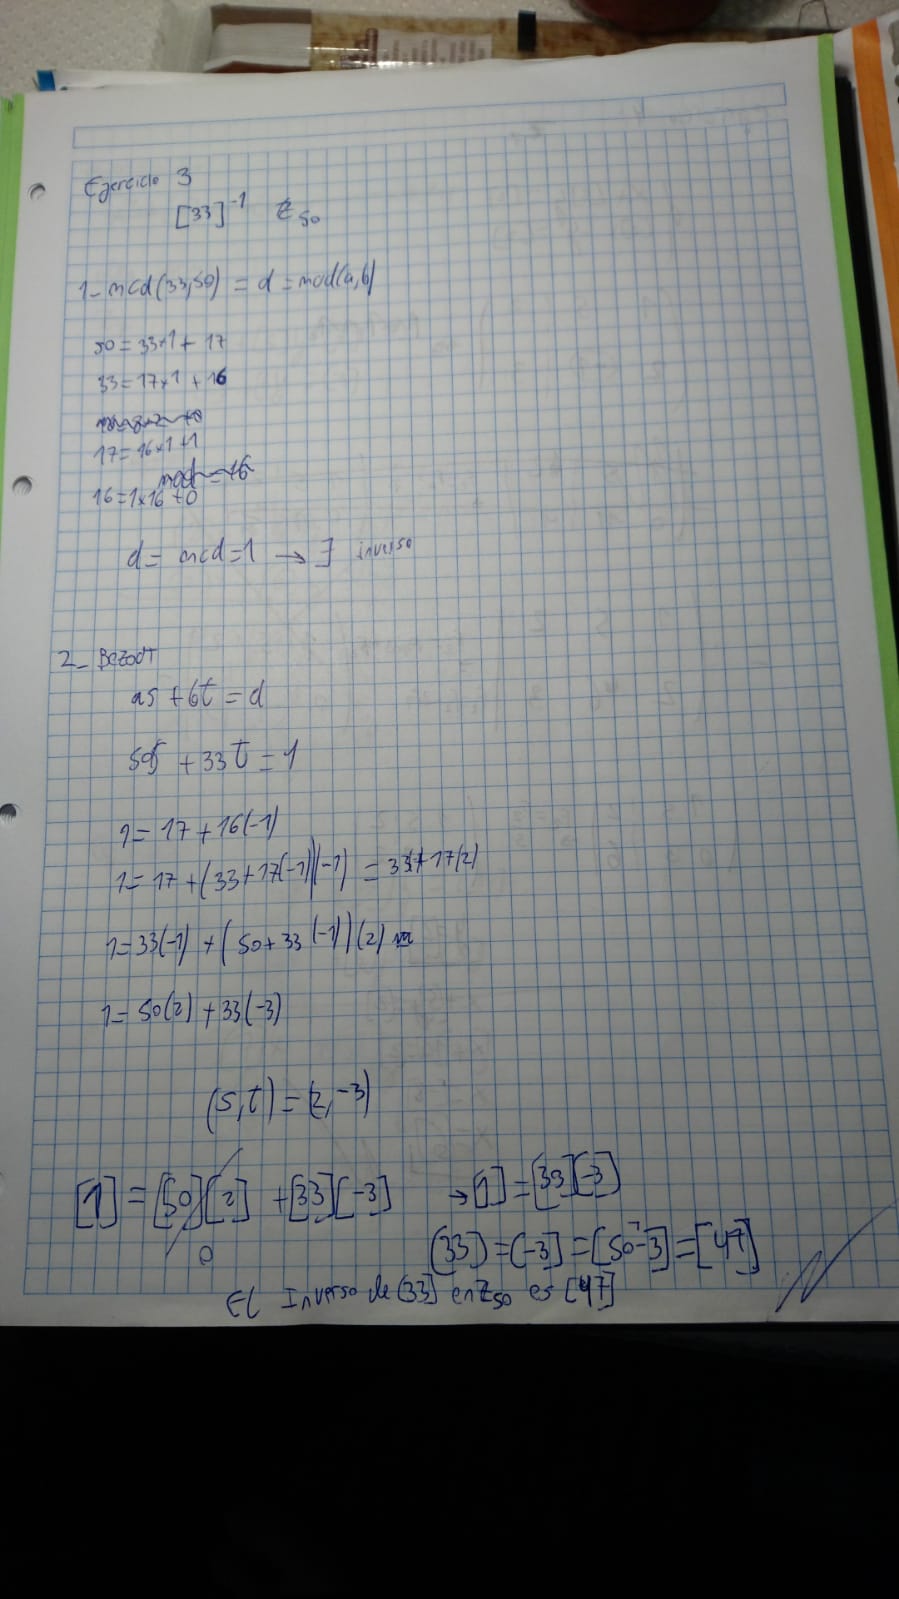 Ejercicio 3
[33]⁻¹ ℤ₅₀
1- mcd(33,50) = d = mcd(a,b)
50 = 33×1 + 17
33 = 17×1 + 16
17 = 16×1 + 1
mcd = 16
16 = 1×16 + 0
d = mcd = 1 → ∃ inverso
2- Bezodt
as + bt = d
50s + 33t = 1
1 = 17 + 16(-1)
1 = 17 + (33 + 17(-1))(-1) = 33 + 17(2)
1 = 33(-1) + (50 + 33(-1))(2)
1 = 50(2) + 33(-3)
(s,t) = (2,-3)
[1] = [50][2] + [33][-3] → [1] = [33][-3]
0
(33)⁻¹ = (-3] = [50-3] = [47]
El Inverso de (33] en ℤ₅₀ es [47]